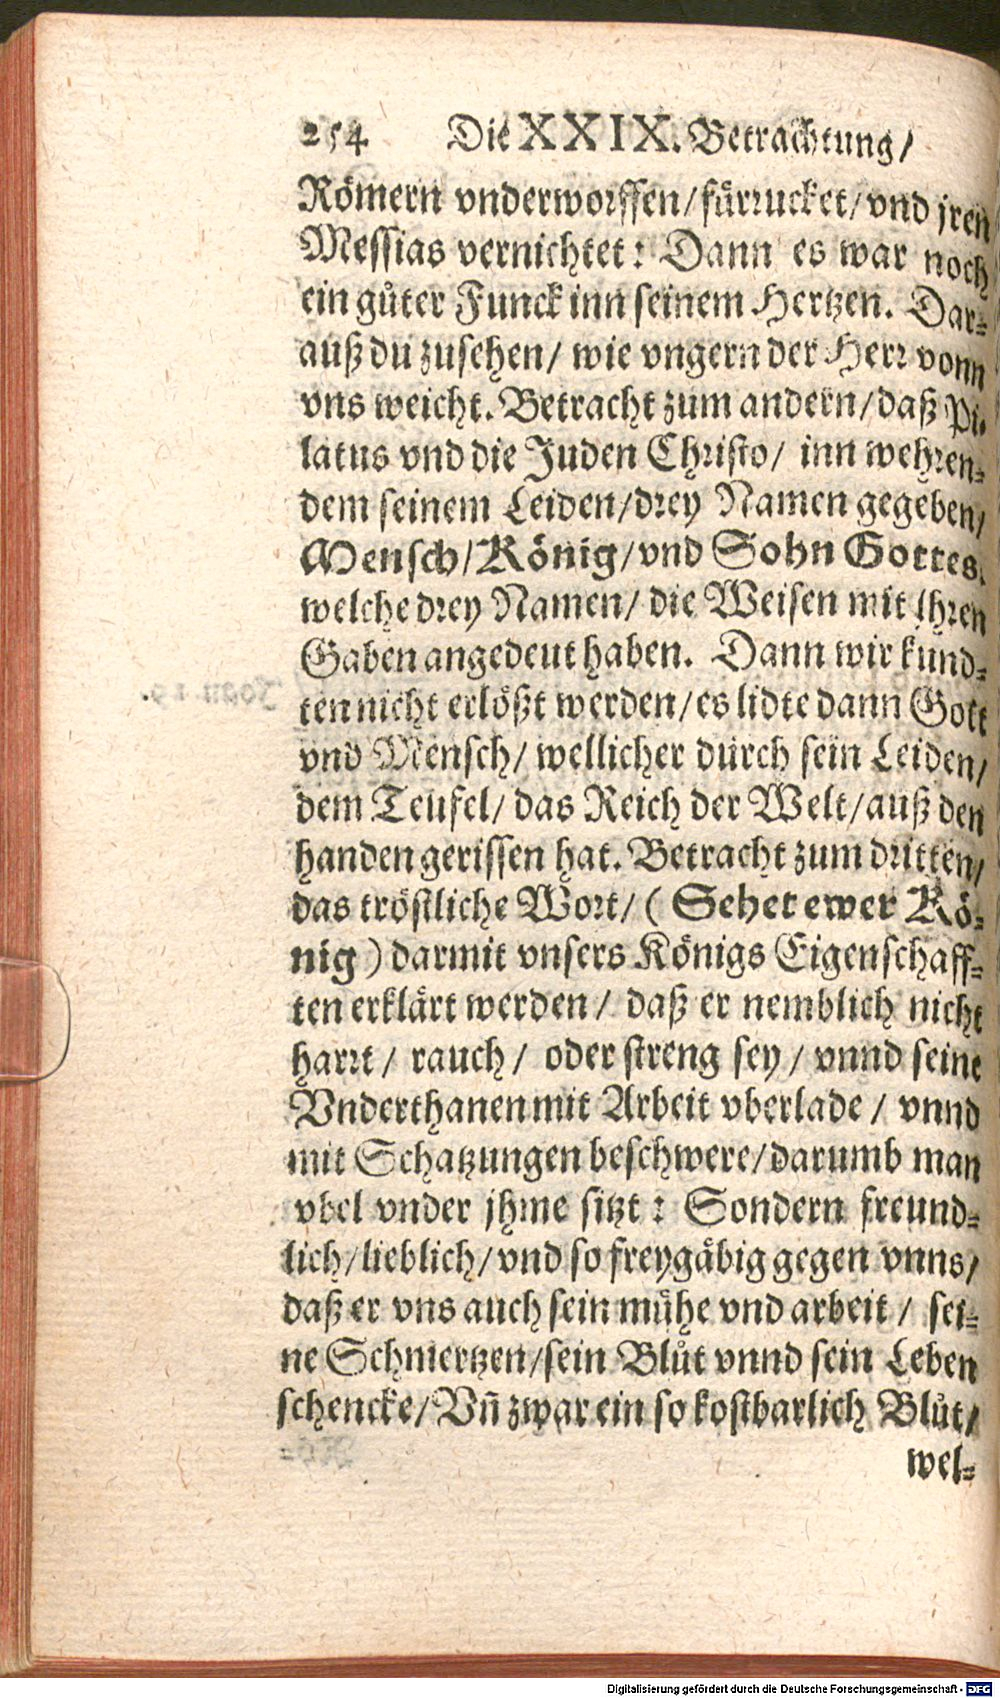 254 Die XXIX. Betrachtung/
Römern vnderworffen/fürrucket/vnd jren
Messias vernichtet: Dann es war noch
ein gůter Funck inn seinem Hertzen. Dar-
auß du zusehen/ wie vngern der Herr vonn
vns weicht. Betracht zum andern/daß Pi-
latus vnd die Juden Christo/ inn wehren-
dem seinem Leiden/drey Namen gegeben/
Mensch/König/vnd Sohn Gottes.
welche drey Namen/ die Weisen mit jhren
Gaben angedeut haben. Dann wir kund-
ten nicht erlößt werden/es lidte dann Gott
vnd Mensch/ wellicher durch sein Leiden/
dem Teufel/ das Reich der Welt/auß den
handen gerissen hat. Betracht zum dritten/
das tröstliche Wort/ ( Sehet ewer Kö-
nig ) darmit vnsers Königs Eigenschaff-
ten erklärt werden/ daß er nemblich nicht
harrt/ rauch/ oder streng sey/ vnnd seine
Vnderthanen mit Arbeit vberlade/ vnnd
mit Schatzungen beschwere/darumb man
vbel vnder jhme sitzt: Sondern freund-
lich/lieblich/vnd so freygäbig gegen vnns/
daß er vns auch sein mühe vnd arbeit/ sei-
ne Schmertzen/sein Blůt vnnd sein Leben
schencke/Vñ zwar ein so kostbarlich Blůt/
wel-
Digitalisierung gefördert durch die Deutsche Forschungsgemeinschaft - DFG